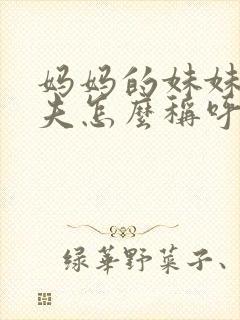 妈妈的妹妹
夫怎麼稱呼
绿華野菜子、